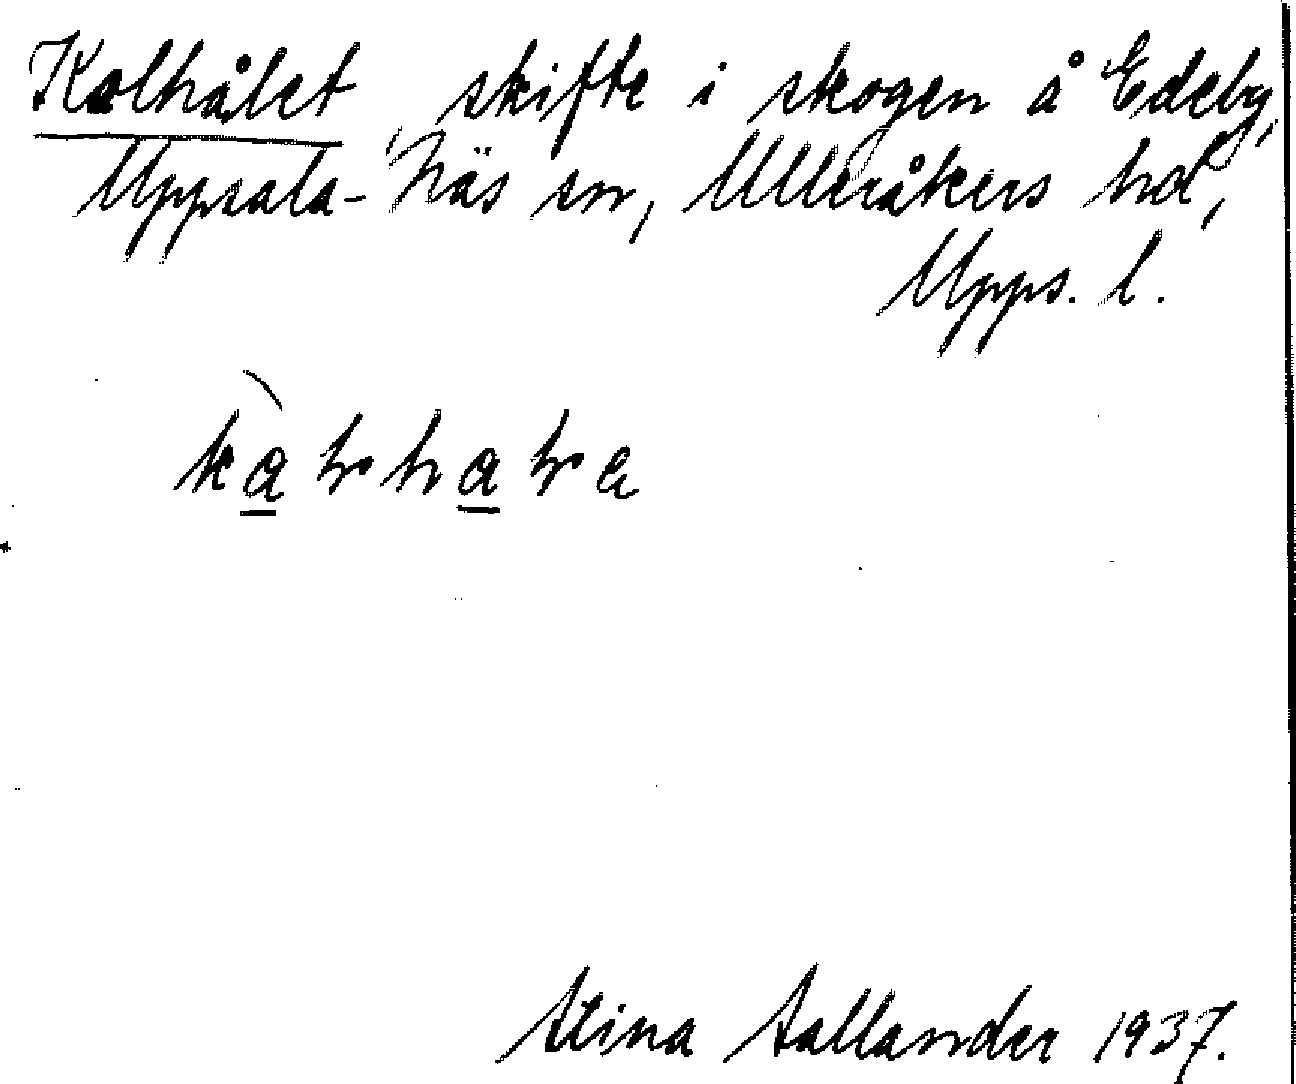 Kolhålet, skifte i skogen å Edeby,
Uppsala-Näs sn, Ulleråkers hd,
Upps. l.
Stina Sallander 1937.